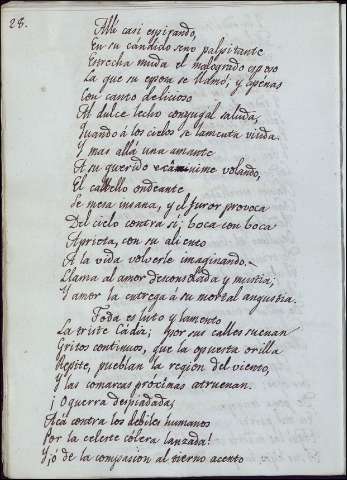 28.
Allí casi espirando,
En su cándido seno palpitante
Estrecha muda el malogrado esposo
La que su esposa se llamó; y apénas
Con canto delicioso
Al dulce lecho conyugal saluda,
Quando á los cielos se lamenta viuda.
Y mas allá una amante
A su querido exânime volando,
El cabello ondeante
Se mesa insana, y el furor provoca
Del cielo contra sí; boca con boca
Aprieta, con su aliento
A la vida volverle imaginando.
Llama al amor desconsolada y mustia;
Y amor la entrega á su mortal angustia.
Toda es luto y lamento
La triste Cádiz; por sus calles suenan
Gritos continuos, que la opuesta orilla
Repite, pueblan la region del viento,
Y las comarcas prócsimas atruenan.
¡O guerra despiadada,
Acá contra los débiles humanos
Por la celeste cólera lanzada!
Y ¡ó de la compasion al tierno acento